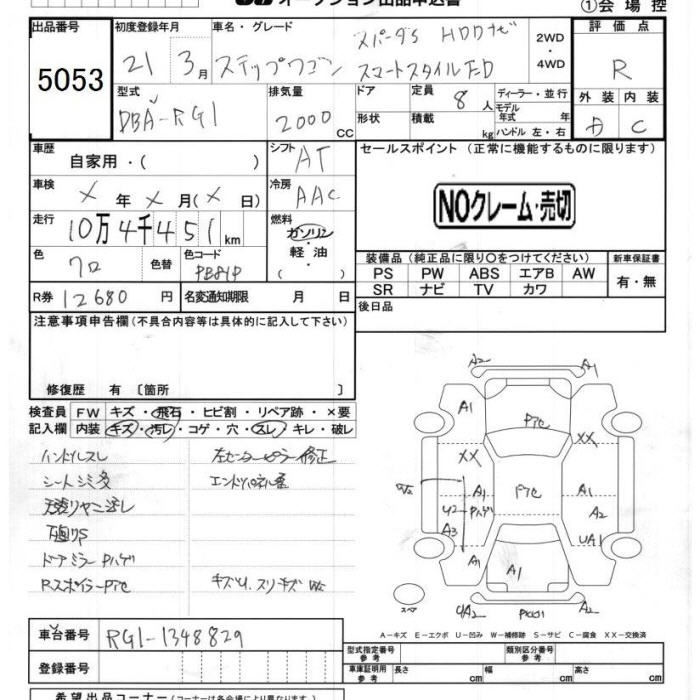 オークション出品申込書
①会場控
出品番号 初度登録年月 車名・グレード 2WD ・ 4WD 評価点
5053 21 3月 ステップワゴン スパーダS HDDナビ スマートスタイルED R
型式 排気量 ドア 定員 8人 ディーラー・並行 外装 内装
DBA-RG1 2000 CC 形状 積載 kg モデル年式 年式 ハンドル 左・右 A C
車歴 自家用・( ) シフト AT セールスポイント (正常に機能するものに限ります)
車検 X年X月(X日) 冷房 AAC
NOクレーム・売切
走行 10万4千451km 燃料 ガソリン・軽油・( )
色 クロ 色替 色コード PB81P
装備品(純正品に限り○をつけてください) 新車保証書
PS PW ABS エアB AW 有・無
SR ナビ TV カワ
R券 12680円 名変通知期限 月 日 後日品
注意事項申告欄(不具合内容等は具体的に記入して下さい)
修復歴 有 〔箇所 〕
検査員 FW キズ・飛石・ヒビ割・リペア跡・×要
記入欄 内装 キズ・汚レ・コゲ・穴・スレ・キレ・破レ
ハンドルスレ 左センターピラー修正
シートシミ多 エンドパネル歪
天張りヤニ汚レ
下廻りS
ドアミラーPハゲ
RスポイラーPTC キズU、スリキズW2
A2 A1
A1 PTC
XX XX
A1 PTC A1
U2 Pハゲ A2
A3 UA1
A1 A1
スペア UA2 A2
A-キズ E-エクボ U-凹み W-補修跡 S-サビ C-腐食 XX-交換済
車台番号 RG1-1348829
登録番号
型式指定番号 参考 類別区分番号 参考
車庫証明用 参考 長さ cm 幅 cm 高さ cm
希望出品コーナー(コーナーは各会場により異なります)